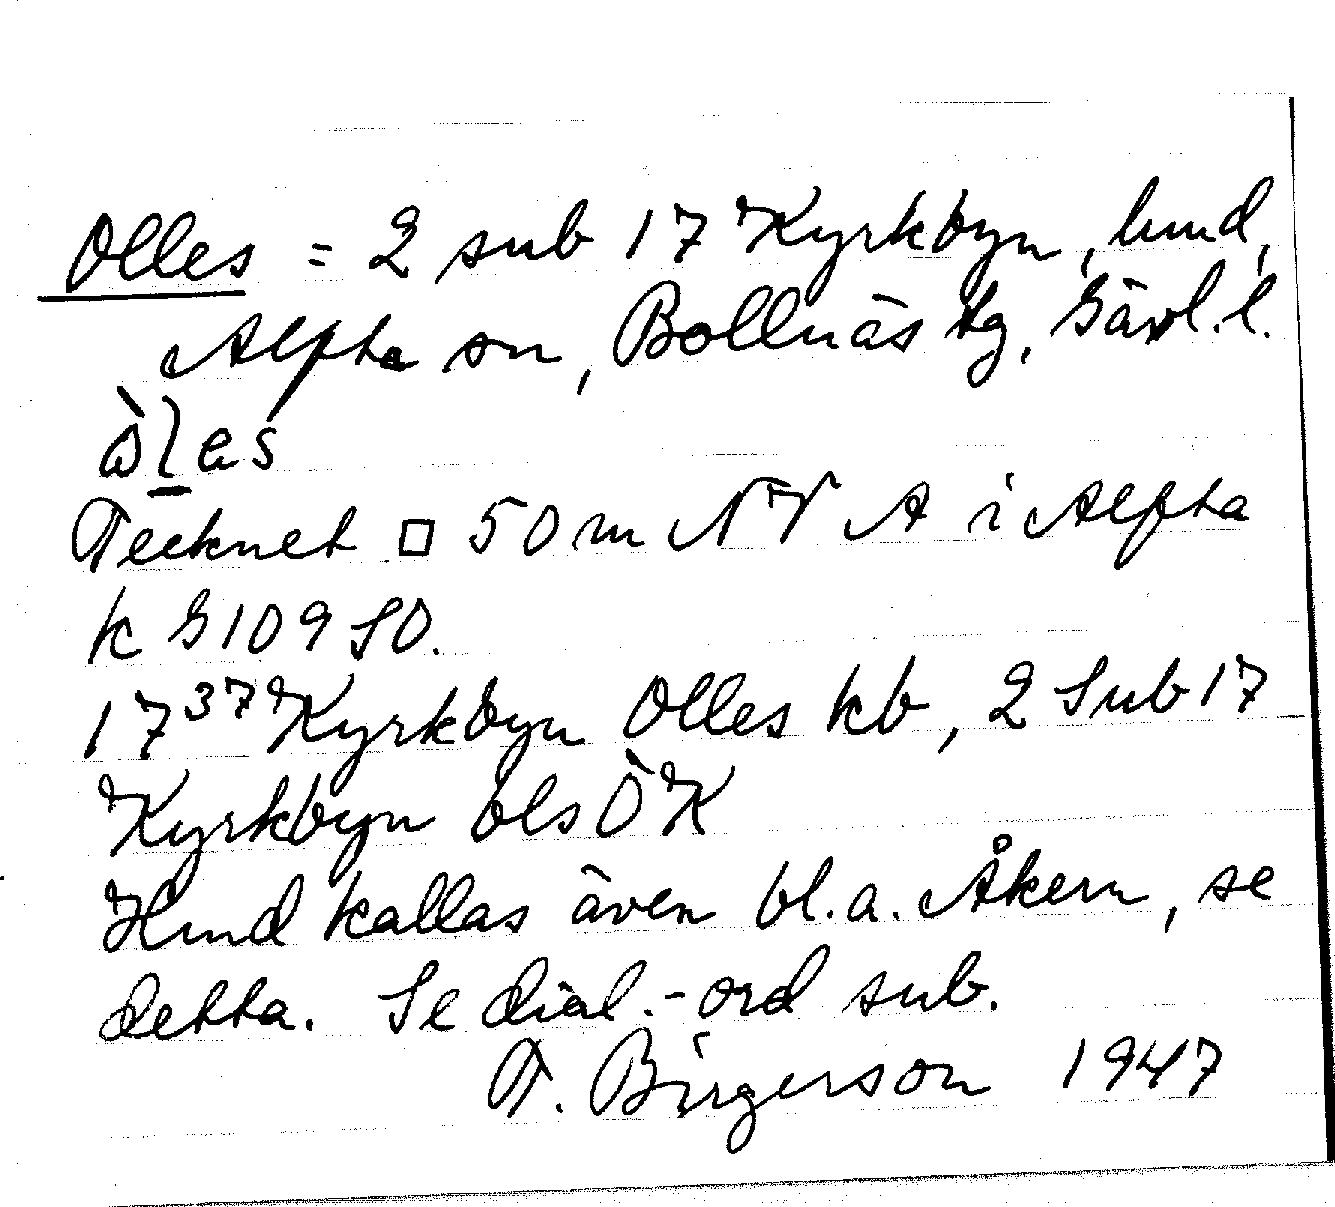 Olles = 2 sub 17 Kyrkbyn, hmd,
Alfta sn, Bollnäs tg, Gävl.l.
Tecknet □ 50 m NV A i Alfta
k G 109 SO.
17³⁷ Kyrkbyn Olles kb, 2 Sub 17
Kyrkbyn bls ÖK
Hmd kallas även bl.a. Åkern, se
detta. Se dial.-ord sub.
T. Birgerson 1947